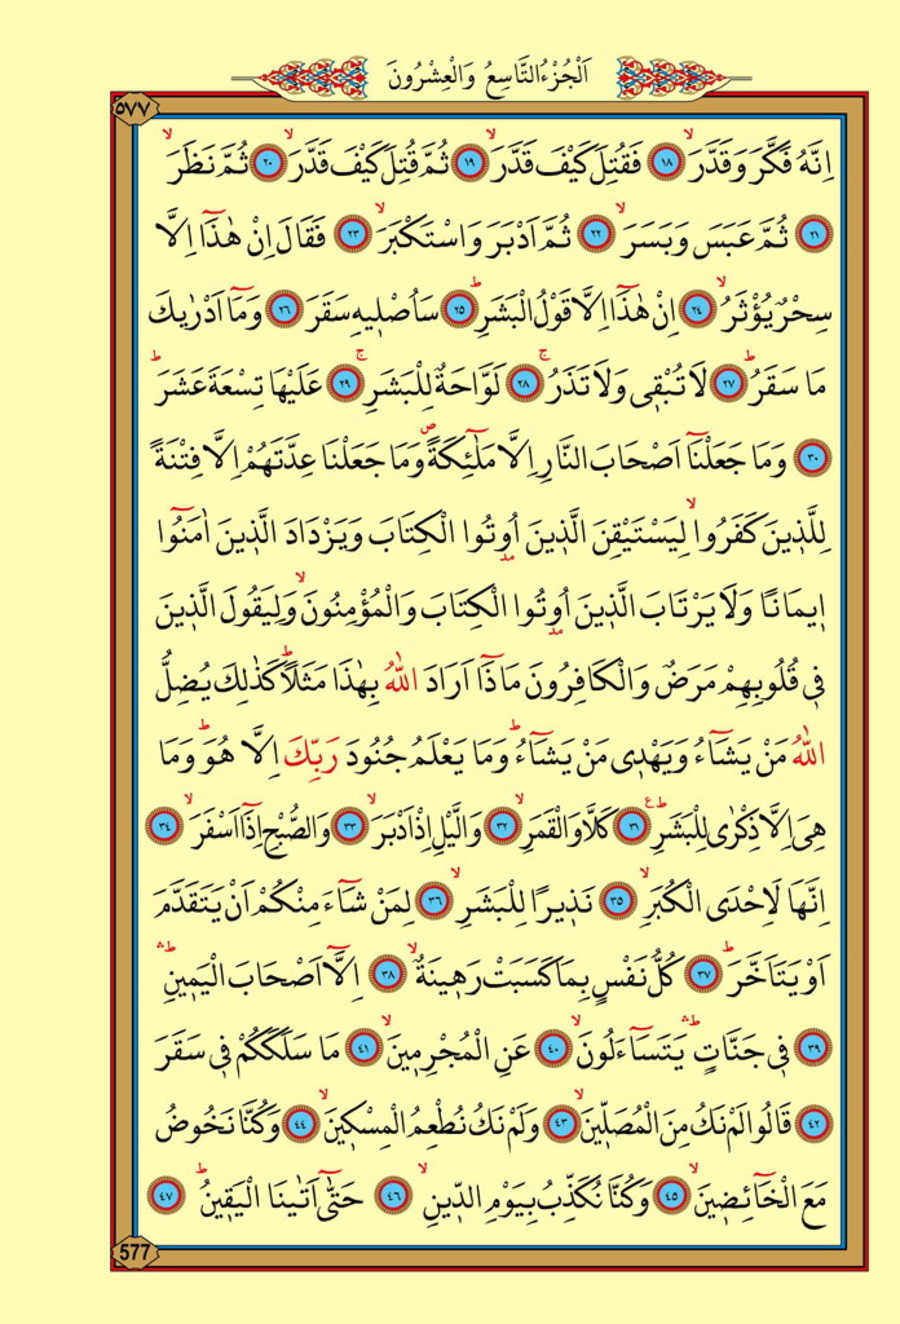 اَلْجُزْءُ التَّاسِعُ وَالْعِشْرُونَ
٥٧٧
اِنَّهُ فَكَّرَ وَقَدَّرَۙ ﴿١٨﴾ فَقُتِلَ كَيْفَ قَدَّرَۙ ﴿١٩﴾ ثُمَّ قُتِلَ كَيْفَ قَدَّرَۙ ﴿٢٠﴾ ثُمَّ نَظَرَۙ
﴿٢١﴾ ثُمَّ عَبَسَ وَبَسَرَۙ ﴿٢٢﴾ ثُمَّ اَدْبَرَ وَاسْتَكْبَرَۙ ﴿٢٣﴾ فَقَالَ اِنْ هٰذَٓا اِلَّا
سِحْرٌ يُؤْثَرُۙ ﴿٢٤﴾ اِنْ هٰذَٓا اِلَّا قَوْلُ الْبَشَرِۜ ﴿٢٥﴾ سَاُصْل۪يهِ سَقَرَ ﴿٢٦﴾ وَمَٓا اَدْرٰيكَ
مَا سَقَرُۜ ﴿٢٧﴾ لَا تُبْق۪ي وَلَا تَذَرُۚ ﴿٢٨﴾ لَوَّاحَةٌ لِلْبَشَرِۚ ﴿٢٩﴾ عَلَيْهَا تِسْعَةَ عَشَرَۜ
﴿٣٠﴾ وَمَا جَعَلْنَٓا اَصْحَابَ النَّارِ اِلَّا مَلٰٓئِكَةًۖ وَمَا جَعَلْنَا عِدَّتَهُمْ اِلَّا فِتْنَةً
لِلَّذ۪ينَ كَفَرُواۙ لِيَسْتَيْقِنَ الَّذ۪ينَ اُو۫تُوا الْكِتَابَ وَيَزْدَادَ الَّذ۪ينَ اٰمَنُٓوا
ا۪يمَانًا وَلَا يَرْتَابَ الَّذ۪ينَ اُو۫تُوا الْكِتَابَ وَالْمُؤْمِنُونَۙ وَلِيَقُولَ الَّذ۪ينَ
ف۪ي قُلُوبِهِمْ مَرَضٌ وَالْكَافِرُونَ مَاذَٓا اَرَادَ اللّٰهُ بِهٰذَا مَثَلًاۜ كَذٰلِكَ يُضِلُّ
اللّٰهُ مَنْ يَشَٓاءُ وَيَهْد۪ي مَنْ يَشَٓاءُۜ وَمَا يَعْلَمُ جُنُودَ رَبِّكَ اِلَّا هُوَۜ وَمَا
هِيَ اِلَّا ذِكْرٰى لِلْبَشَرِۜ ع ﴿٣١﴾ كَلَّا وَالْقَمَرِۙ ﴿٣٢﴾ وَالَّيْلِ اِذْ اَدْبَرَۙ ﴿٣٣﴾ وَالصُّبْحِ اِذَٓا اَسْفَرَۙ ﴿٣٤﴾
اِنَّهَا لَاِحْدَى الْكُبَرِۙ ﴿٣٥﴾ نَذ۪يرًا لِلْبَشَرِۙ ﴿٣٦﴾ لِمَنْ شَٓاءَ مِنْكُمْ اَنْ يَتَقَدَّمَ
اَوْ يَتَاَخَّرَۜ ﴿٣٧﴾ كُلُّ نَفْسٍ بِمَا كَسَبَتْ رَه۪ينَةٌۙ ﴿٣٨﴾ اِلَّٓا اَصْحَابَ الْيَم۪ينِۜۛ
﴿٣٩﴾ ف۪ي جَنَّاتٍۜۛ يَتَسَٓاءَلُونَۙ ﴿٤٠﴾ عَنِ الْمُجْرِم۪ينَۙ ﴿٤١﴾ مَا سَلَكَكُمْ ف۪ي سَقَرَ
﴿٤٢﴾ قَالُوا لَمْ نَكُ مِنَ الْمُصَلّ۪ينَۙ ﴿٤٣﴾ وَلَمْ نَكُ نُطْعِمُ الْمِسْك۪ينَۙ ﴿٤٤﴾ وَكُنَّا نَخُوضُ
مَعَ الْخَٓائِض۪ينَۙ ﴿٤٥﴾ وَكُنَّا نُكَذِّبُ بِيَوْمِ الدّ۪ينِۙ ﴿٤٦﴾ حَتّٰٓى اَتٰينَا الْيَق۪ينُۜ ﴿٤٧﴾
577